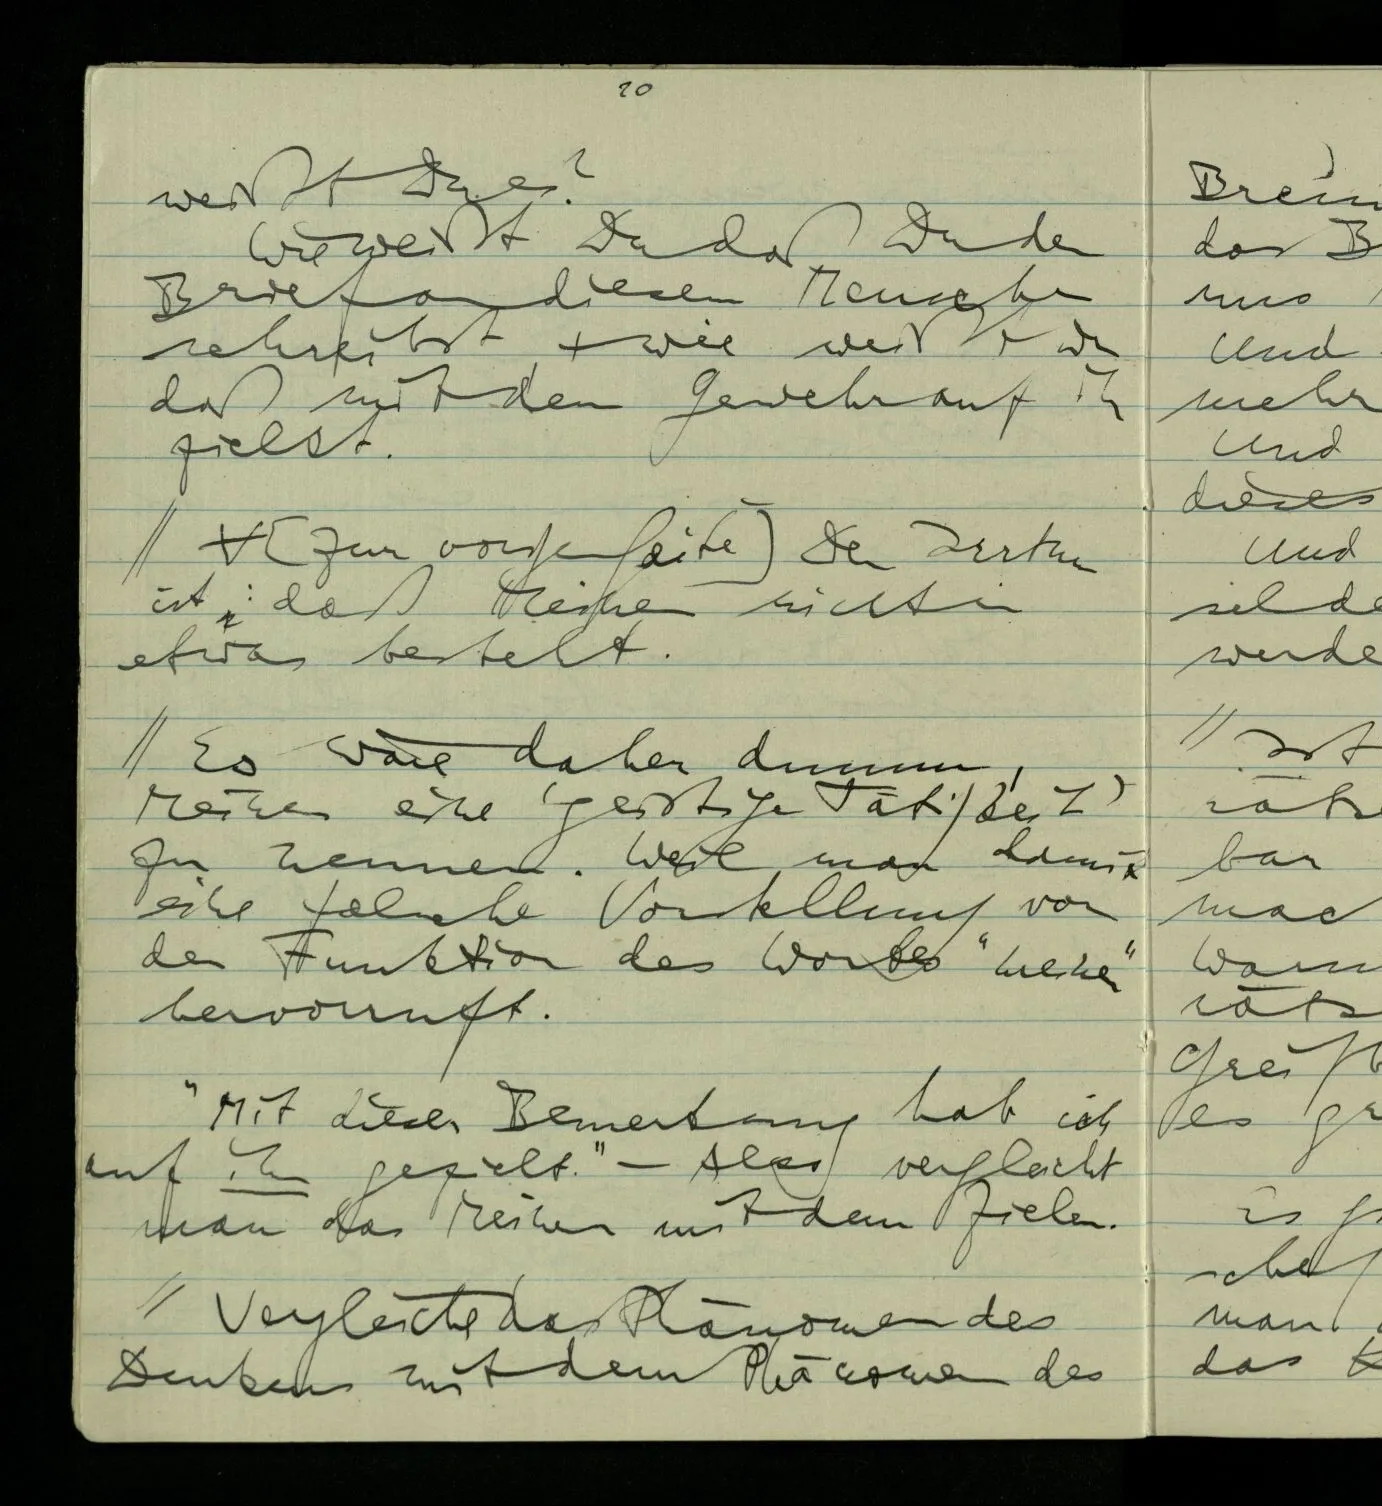 20
weißt Du es?
Wie weißt Du daß Du den
Brief an diesen Menschen
schreibst + wie weißt du
daß mit dem Gewehr auf ihn
zielst.
// ∀ [Zur vorigen Seite] Der Irrtum
ist : daß Meinen nicht in
etwas besteht.
// Es wäre daher dumm,
Meinen eine 'geistige Tätigkeit'
zu nennen. Weil man damit
eine falsche Vorstellung von
der Funktion des Wortes "meinen"
hervorruft.
"Mit dieser Bemerkung hab ich
auf ihn gezielt." – Also vergleicht
man das Meinen mit dem Zielen.
/ Vergleiche das Phänomen des
Denkens mit dem Phänomen des
das B
uns
Und
mehr
Und
dieses
Und
werde
// Ist
bar
mac
es
man
das